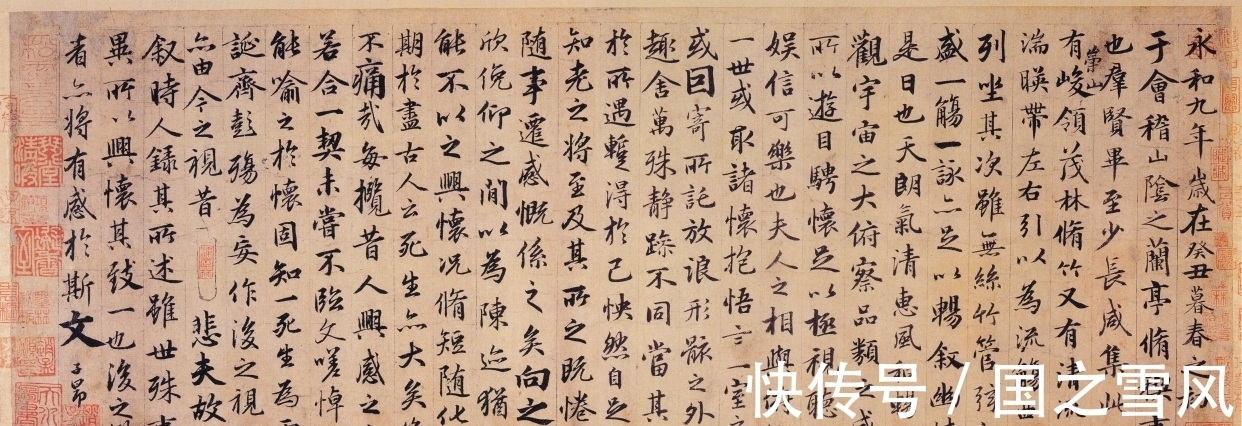 永和九年歲在癸丑暮春之
于會稽山陰之蘭亭脩禊事
也羣賢畢至少長咸集此
有崇山峻領茂林脩竹又有清流
湍暎帶左右引以為流觴
列坐其次雖無絲竹管弦
盛一觴一詠亦足以暢叙幽
是日也天朗氣清惠風和
觀宇宙之大俯察品類之盛
所以遊目騁懷足以極視聽
娱信可樂也夫人之相與
一世或取諸懷抱悟言一室
或因寄所託放浪形骸之外
趣舍萬殊静躁不同當其
於所遇蹔得於己怏然自足
知老之將至及其所之既惓
随事遷感慨係之矣向之
欣俛仰之間以為陳迹猶
能不以之興懷况脩短随化
期於盡古人云死生亦大矣
不痛哉每攬昔人興感之
若合一契未嘗不臨文嗟悼
能喻之於懷固知一死生為
誕齊彭殤為妄作後之視
亦由今之視昔悲夫故
叙時人錄其所述雖世殊
異所以興懷其致一也後之
者亦將有感於斯文
子昂
快传号 / 国之雪风